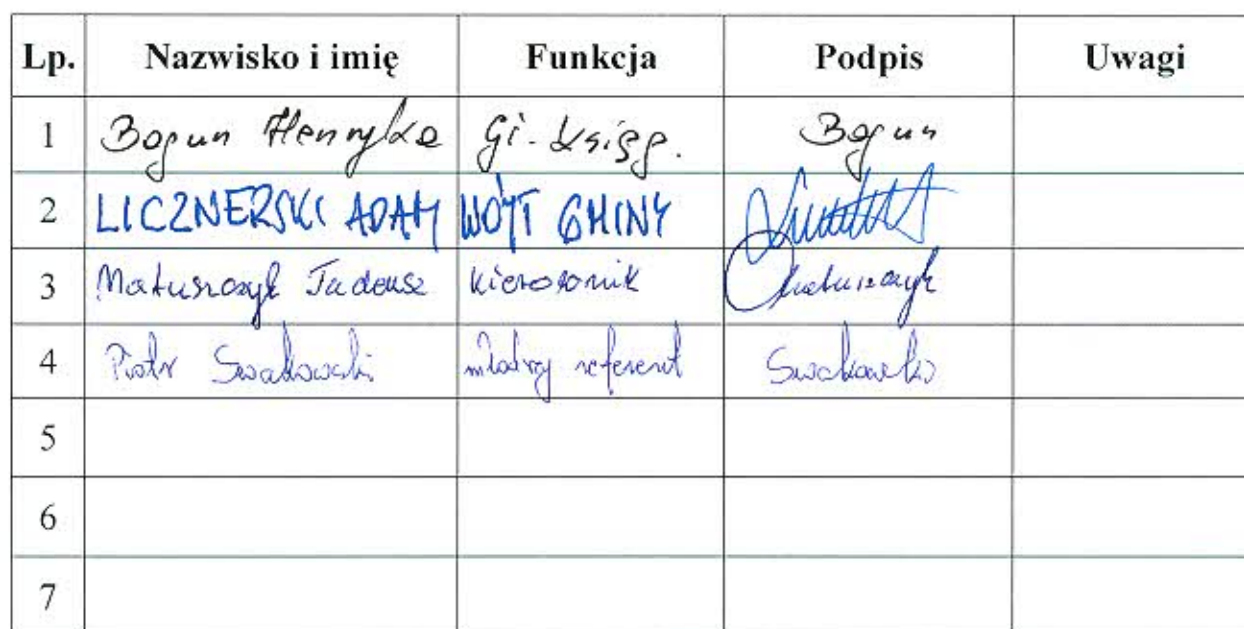 Lp. Nazwisko i imię Funkcja Podpis Uwagi
1 Bogun Henryka Gł. księg. Bogun
2 LICZNERSKI ADAM WÓJT GMINY
3 Matuszczyk Tadeusz kierownik Matuszczyk
4 Piotr Swakowski młodszy referent Swakowski
5
6
7